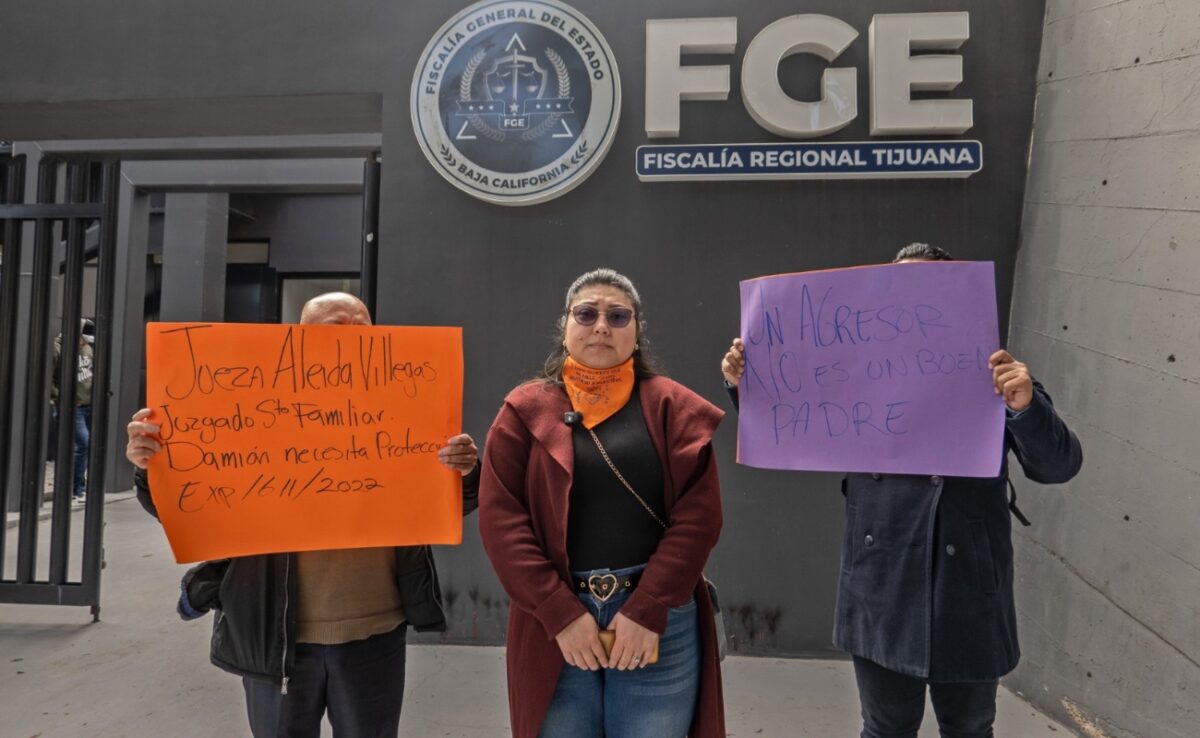 FISCALÍA GENERAL DEL ESTADO
FGE
BAJA CALIFORNIA
FGE
FISCALÍA REGIONAL TIJUANA
Jueza Aleida Villegas
Juzgado 5to Familiar.
Damión necesita Protecci
Exp/1611/2022
UN AGRESOR
NO ES UN BUEN
PADRE